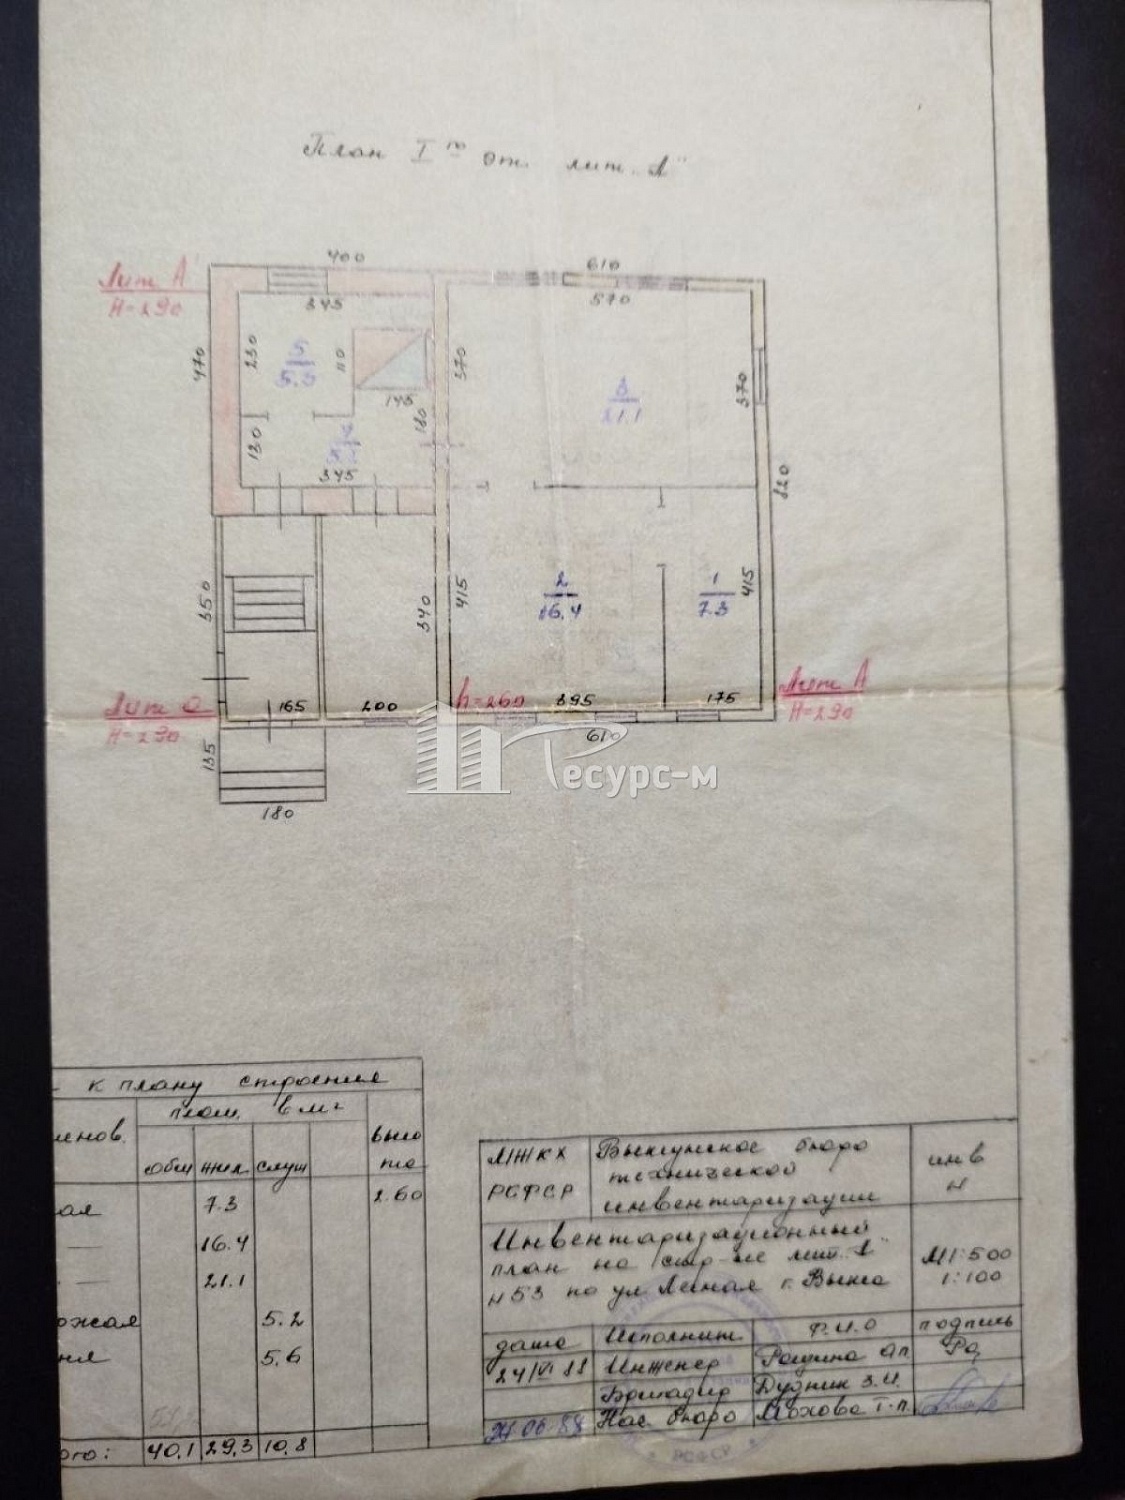 План I го эт. лит. А"
400
610
Лит А'
Н=290
345
570
5
5.6
230
110
370
3
21.1
370
470
145
130
130
345
820
350
340
415
2
16.4
1
7.3
415
Лит О
Н=290
165
200
h=260
395
175
Лит А
Н=290
610
135
180
Ресурс-м
к плану строения
площ. в м2
менов.
общ жил служ
высо
та
ая 7.3 2.60
— 16.4
— 21.1
ожая 5.2
ня 5.6
ого: 40,1 29,3 10,8
МЖКХ
РСФСР
Выксунское бюро
технической
инвентаризации
инв
н
Инвентаризационный
план на стр-ие лит. А"
н 53 по ул Лесная г. Выкса
М 1:500
1:100
дата Исполнит. Ф.И.О подпись
24/VI 88 Инженер
Бригадир Дудник З.И.
24.06.88 Нач. бюро Мохова Т.П.
РСФСР